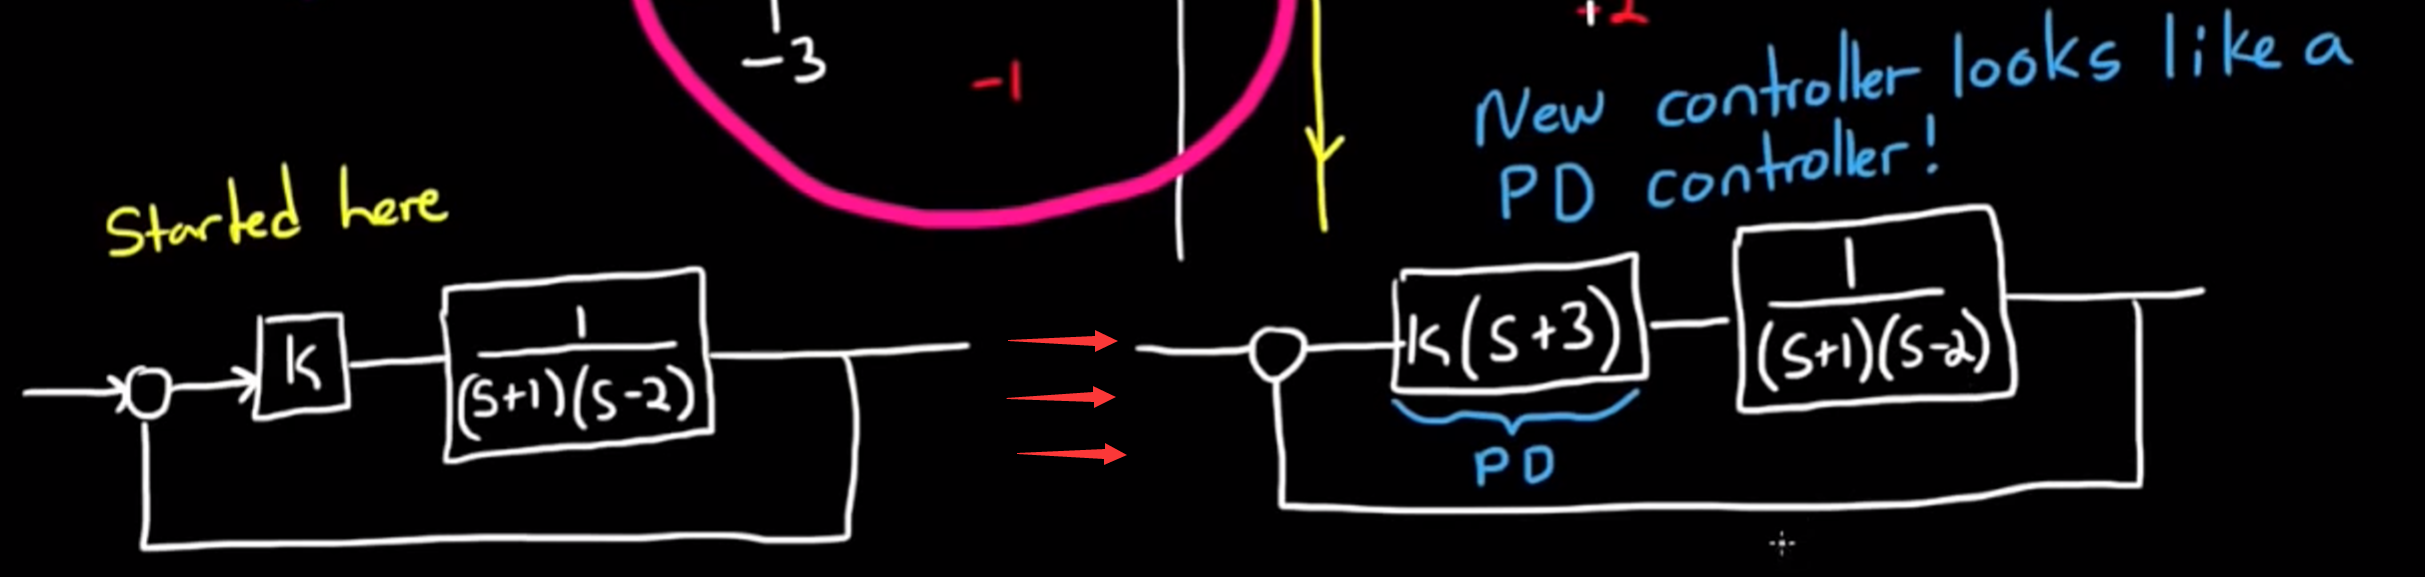 -3
-1
+2
New controller looks like a
PD controller!
Started here
K
1
(S+1)(S-2)
K(S+3)
1
(S+1)(S-2)
PD